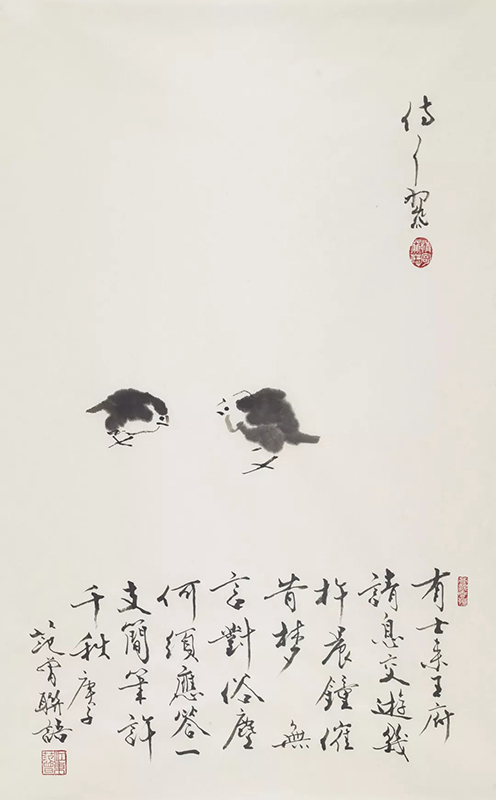 有士来王府
請息交遊幾
杵晨鐘催
昔梦 無
言對俗塵
何須應答一
支簡筆許
千秋 庚子
范曾聯語